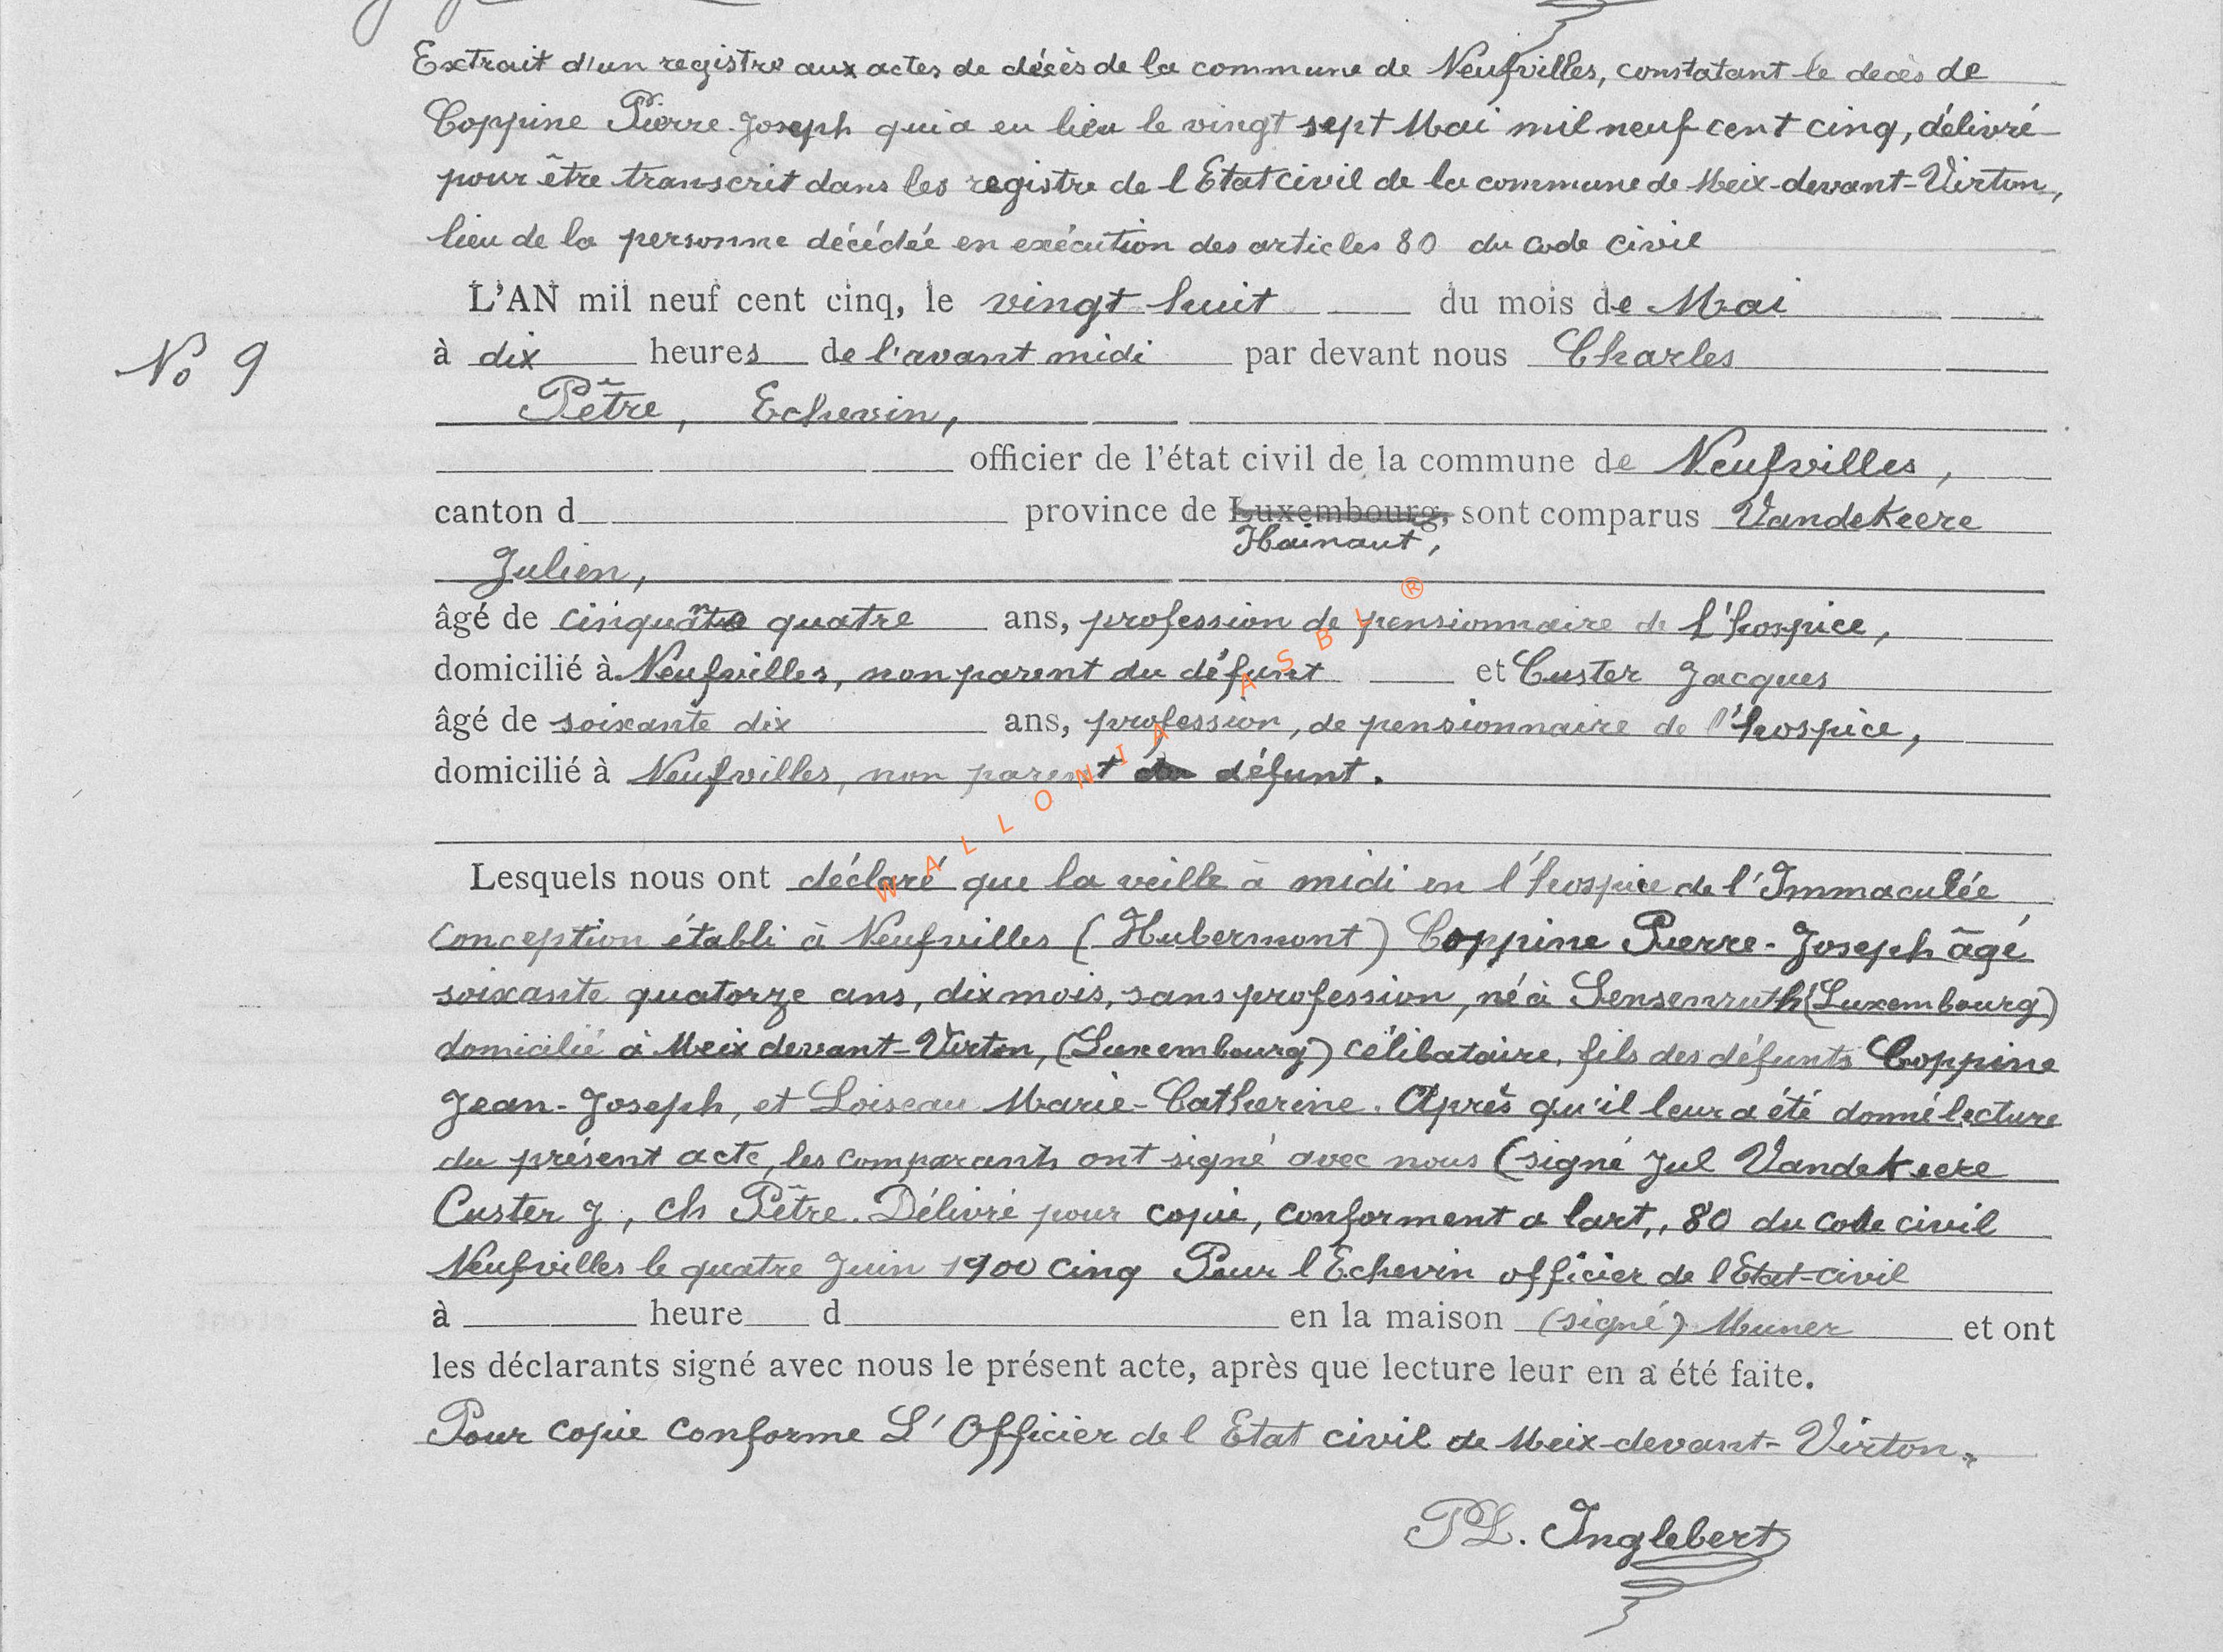 Extrait d'un registre aux actes de décès de la commune de Neufvilles, constatant le decès de
Coppine Pierre-Joseph qui a eu lieu le vingt sept Mai mil neuf cent cinq, délivré
pour être transcrit dans les registre de l Etat civil de la commune de Meix-devant-Virton,
lieu de la personne décédée en exécution des articles 80 du code civil
L'AN mil neuf cent cinq, le vingt huit du mois de Mai
No 9
à dix heures de l'avant midi par devant nous Charles
Pêtre, Echevin,
officier de l'état civil de la commune de Neufvilles,
canton d province de Luxembourg, sont comparus Vandekeere
Hainaut,
Julien,
âgé de cinquante quatre ans, profession de pensionnaire de l'hospice,
domicilié à Neufvilles, non parent du défunt et Custer Jacques
âgé de soixante dix ans, profession, de pensionnaire de l'hospice,
domicilié à Neufvilles, non parent du défunt.
Lesquels nous ont déclaré que la veille à midi en l'hospice de l'Immaculée
Conception établi à Neufvilles (Hubermont) Coppine Pierre-Joseph âgé
soixante quatorze ans, dix mois, sans profession, né à Sensenruth (Luxembourg)
domicilié à Meix devant-Virton, (Luxembourg) célibataire, fils des défunts Coppine
Jean-Joseph, et Loiseau Marie-Catherine. Après qu'il leur a été donné lecture
du présent acte, les comparants ont signé avec nous (signé Jul Vandekeere
Custer J, ch Pêtre. Délivré pour copie, conforment a lart,, 80 du code civil
Neufvilles le quatre Juin 1900 cinq Pour l'Echevin officier de l Etat-civil
à heure d en la maison (signé) Muner et ont
les déclarants signé avec nous le présent acte, après que lecture leur en a été faite.
Pour copie conforme L'Officier de l Etat civil de Meix-devant-Virton.
PL. Inglebert
WALLONIA ASBL ®